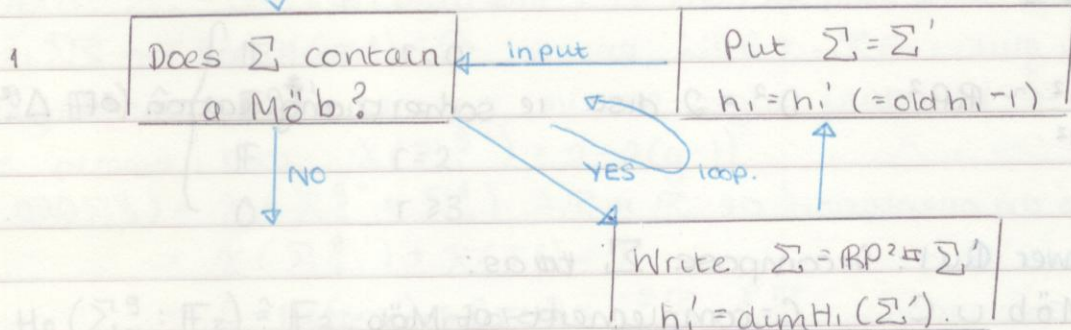 1
Does Σ contain
a Möb?
input
Put Σ = Σ'
h₁ = h₁' (= old h₁ - 1)
NO
YES
loop.
Write Σ = RP² # Σ'
h₁' = dim H₁ (Σ').